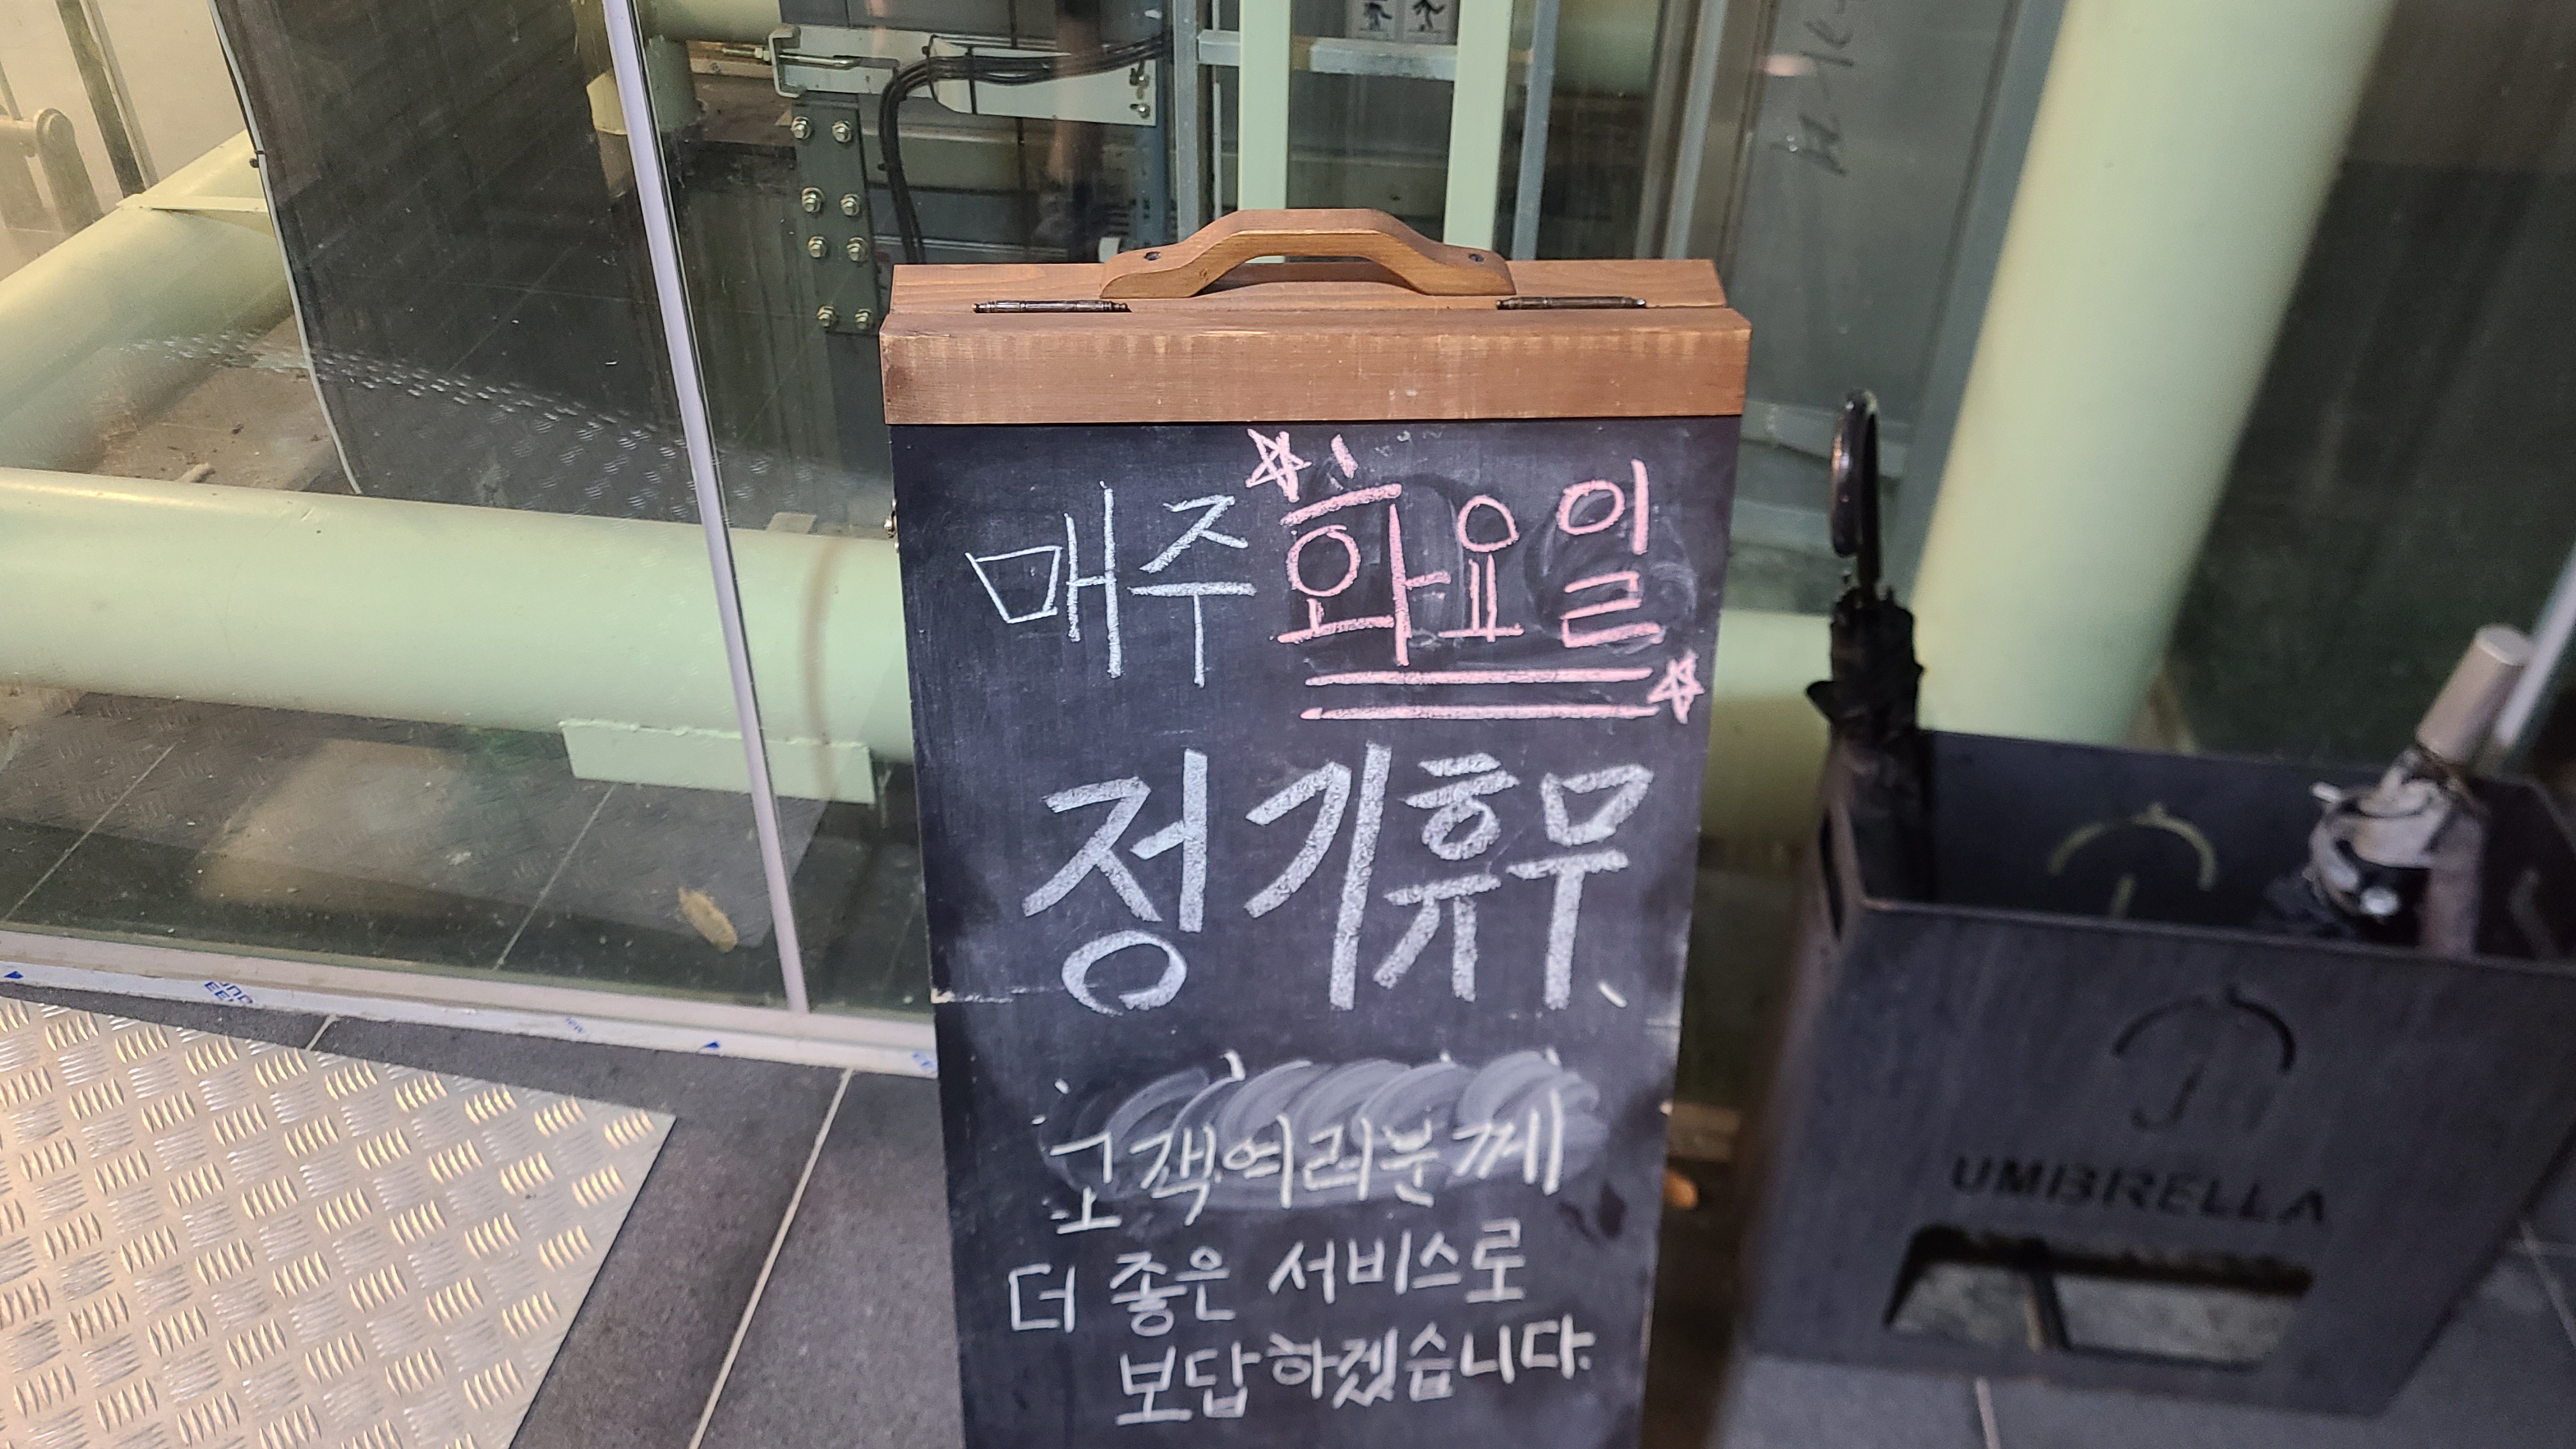 매주 화요일
정기휴무.
고객여러분께
더 좋은 서비스로
보답하겠습니다.
UMBRELLA